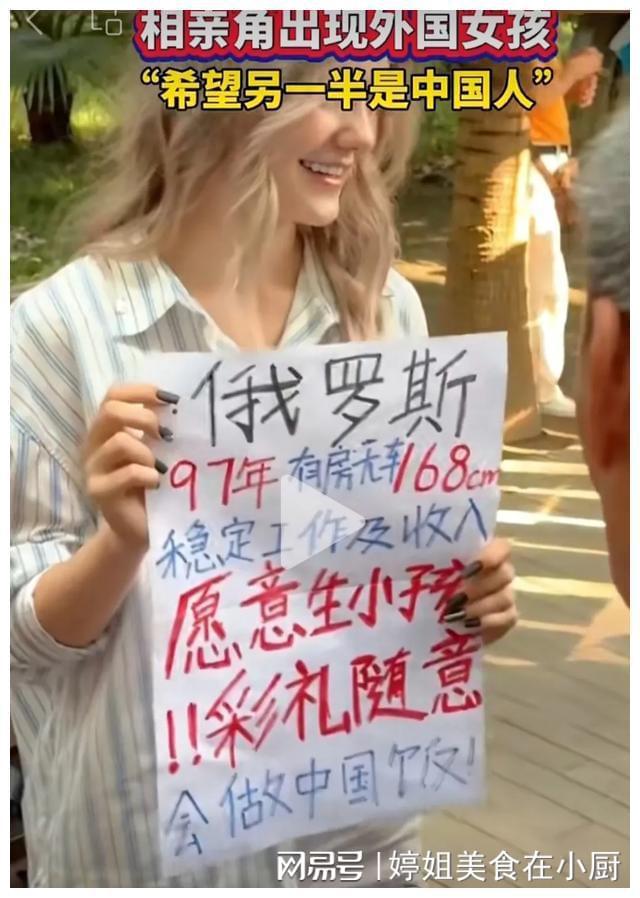 相亲角出现外国女孩
“希望另一半是中国人”
俄罗斯
97年 有房无车 168cm
稳定工作及收入
愿意生小孩
!!彩礼随意
会做中国饭!
网易号 | 婷姐美食在小厨